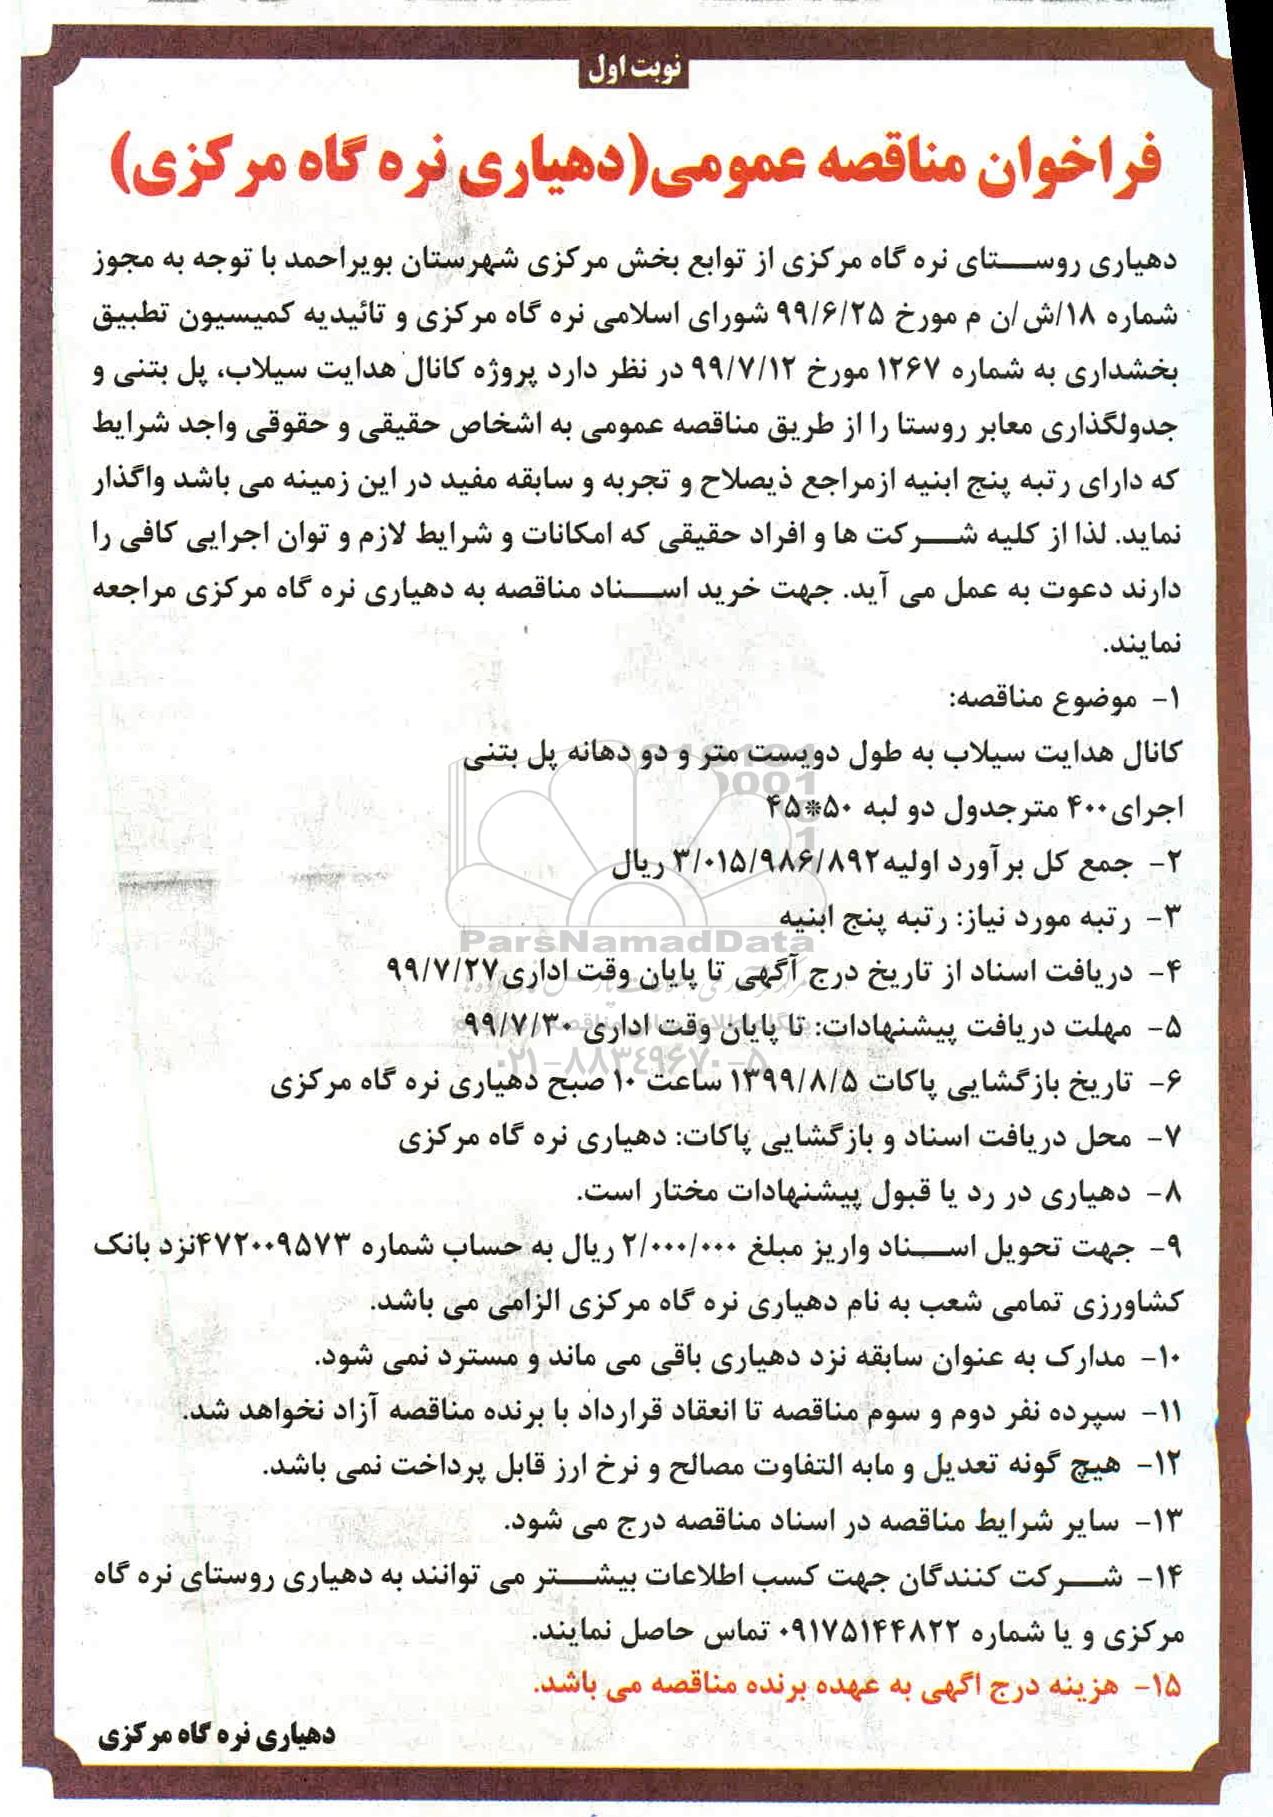 نوبت اول
فراخوان مناقصه عمومی(دهیاری نره گاه مرکزی)
دهیاری روستای نره گاه مرکزی از توابع بخش مرکزی شهرستان بویراحمد با توجه به مجوز
شماره ۱۸/ش/ن م مورخ ۹۹/۶/۲۵ شورای اسلامی نره گاه مرکزی و تائیدیه کمیسیون تطبیق
بخشداری به شماره ۱۲۶۷ مورخ ۹۹/۷/۱۲ در نظر دارد پروژه کانال هدایت سیلاب، پل بتنی و
جدولگذاری معابر روستا را از طریق مناقصه عمومی به اشخاص حقیقی و حقوقی واجد شرایط
که دارای رتبه پنج ابنیه ازمراجع ذیصلاح و تجربه و سابقه مفید در این زمینه می باشد واگذار
نماید. لذا از کلیه شرکت ها و افراد حقیقی که امکانات و شرایط لازم و توان اجرایی کافی را
دارند دعوت به عمل می آید. جهت خرید اسناد مناقصه به دهیاری نره گاه مرکزی مراجعه
نمایند.
۱- موضوع مناقصه:
کانال هدایت سیلاب به طول دویست متر و دو دهانه پل بتنی
اجرای۴۰۰ مترجدول دو لبه ۵۰*۴۵
۲- جمع کل برآورد اولیه۳/۰۱۵/۹۸۶/۸۹۲ ریال
۳- رتبه مورد نیاز: رتبه پنج ابنیه
ParsNamadData
۴- دریافت اسناد از تاریخ درج آگهی تا پایان وقت اداری۹۹/۷/۲۷
۵- مهلت دریافت پیشنهادات: تا پایان وقت اداری ۹۹/۷/۳۰
۰۲۱-۸۸۳۴۹۶۷۰-۵
۶- تاریخ بازگشایی پاکات ۱۳۹۹/۸/۵ ساعت ۱۰ صبح دهیاری نره گاه مرکزی
۷- محل دریافت اسناد و بازگشایی پاکات: دهیاری نره گاه مرکزی
۸- دهیاری در رد یا قبول پیشنهادات مختار است.
۹- جهت تحویل اسناد واریز مبلغ ۲/۰۰۰/۰۰۰ ریال به حساب شماره ۴۷۲۰۰۹۵۷۳نزد بانک
کشاورزی تمامی شعب به نام دهیاری نره گاه مرکزی الزامی می باشد.
۱۰- مدارک به عنوان سابقه نزد دهیاری باقی می ماند و مسترد نمی شود.
۱۱- سپرده نفر دوم و سوم مناقصه تا انعقاد قرارداد با برنده مناقصه آزاد نخواهد شد.
۱۲- هیچ گونه تعدیل و مابه التفاوت مصالح و نرخ ارز قابل پرداخت نمی باشد.
۱۳- سایر شرایط مناقصه در اسناد مناقصه درج می شود.
۱۴- شرکت کنندگان جهت کسب اطلاعات بیشتر می توانند به دهیاری روستای نره گاه
مرکزی و یا شماره ۰۹۱۷۵۱۴۴۸۲۲ تماس حاصل نمایند.
۱۵- هزینه درج اگهی به عهده برنده مناقصه می باشد.
دهیاری نره گاه مرکزی